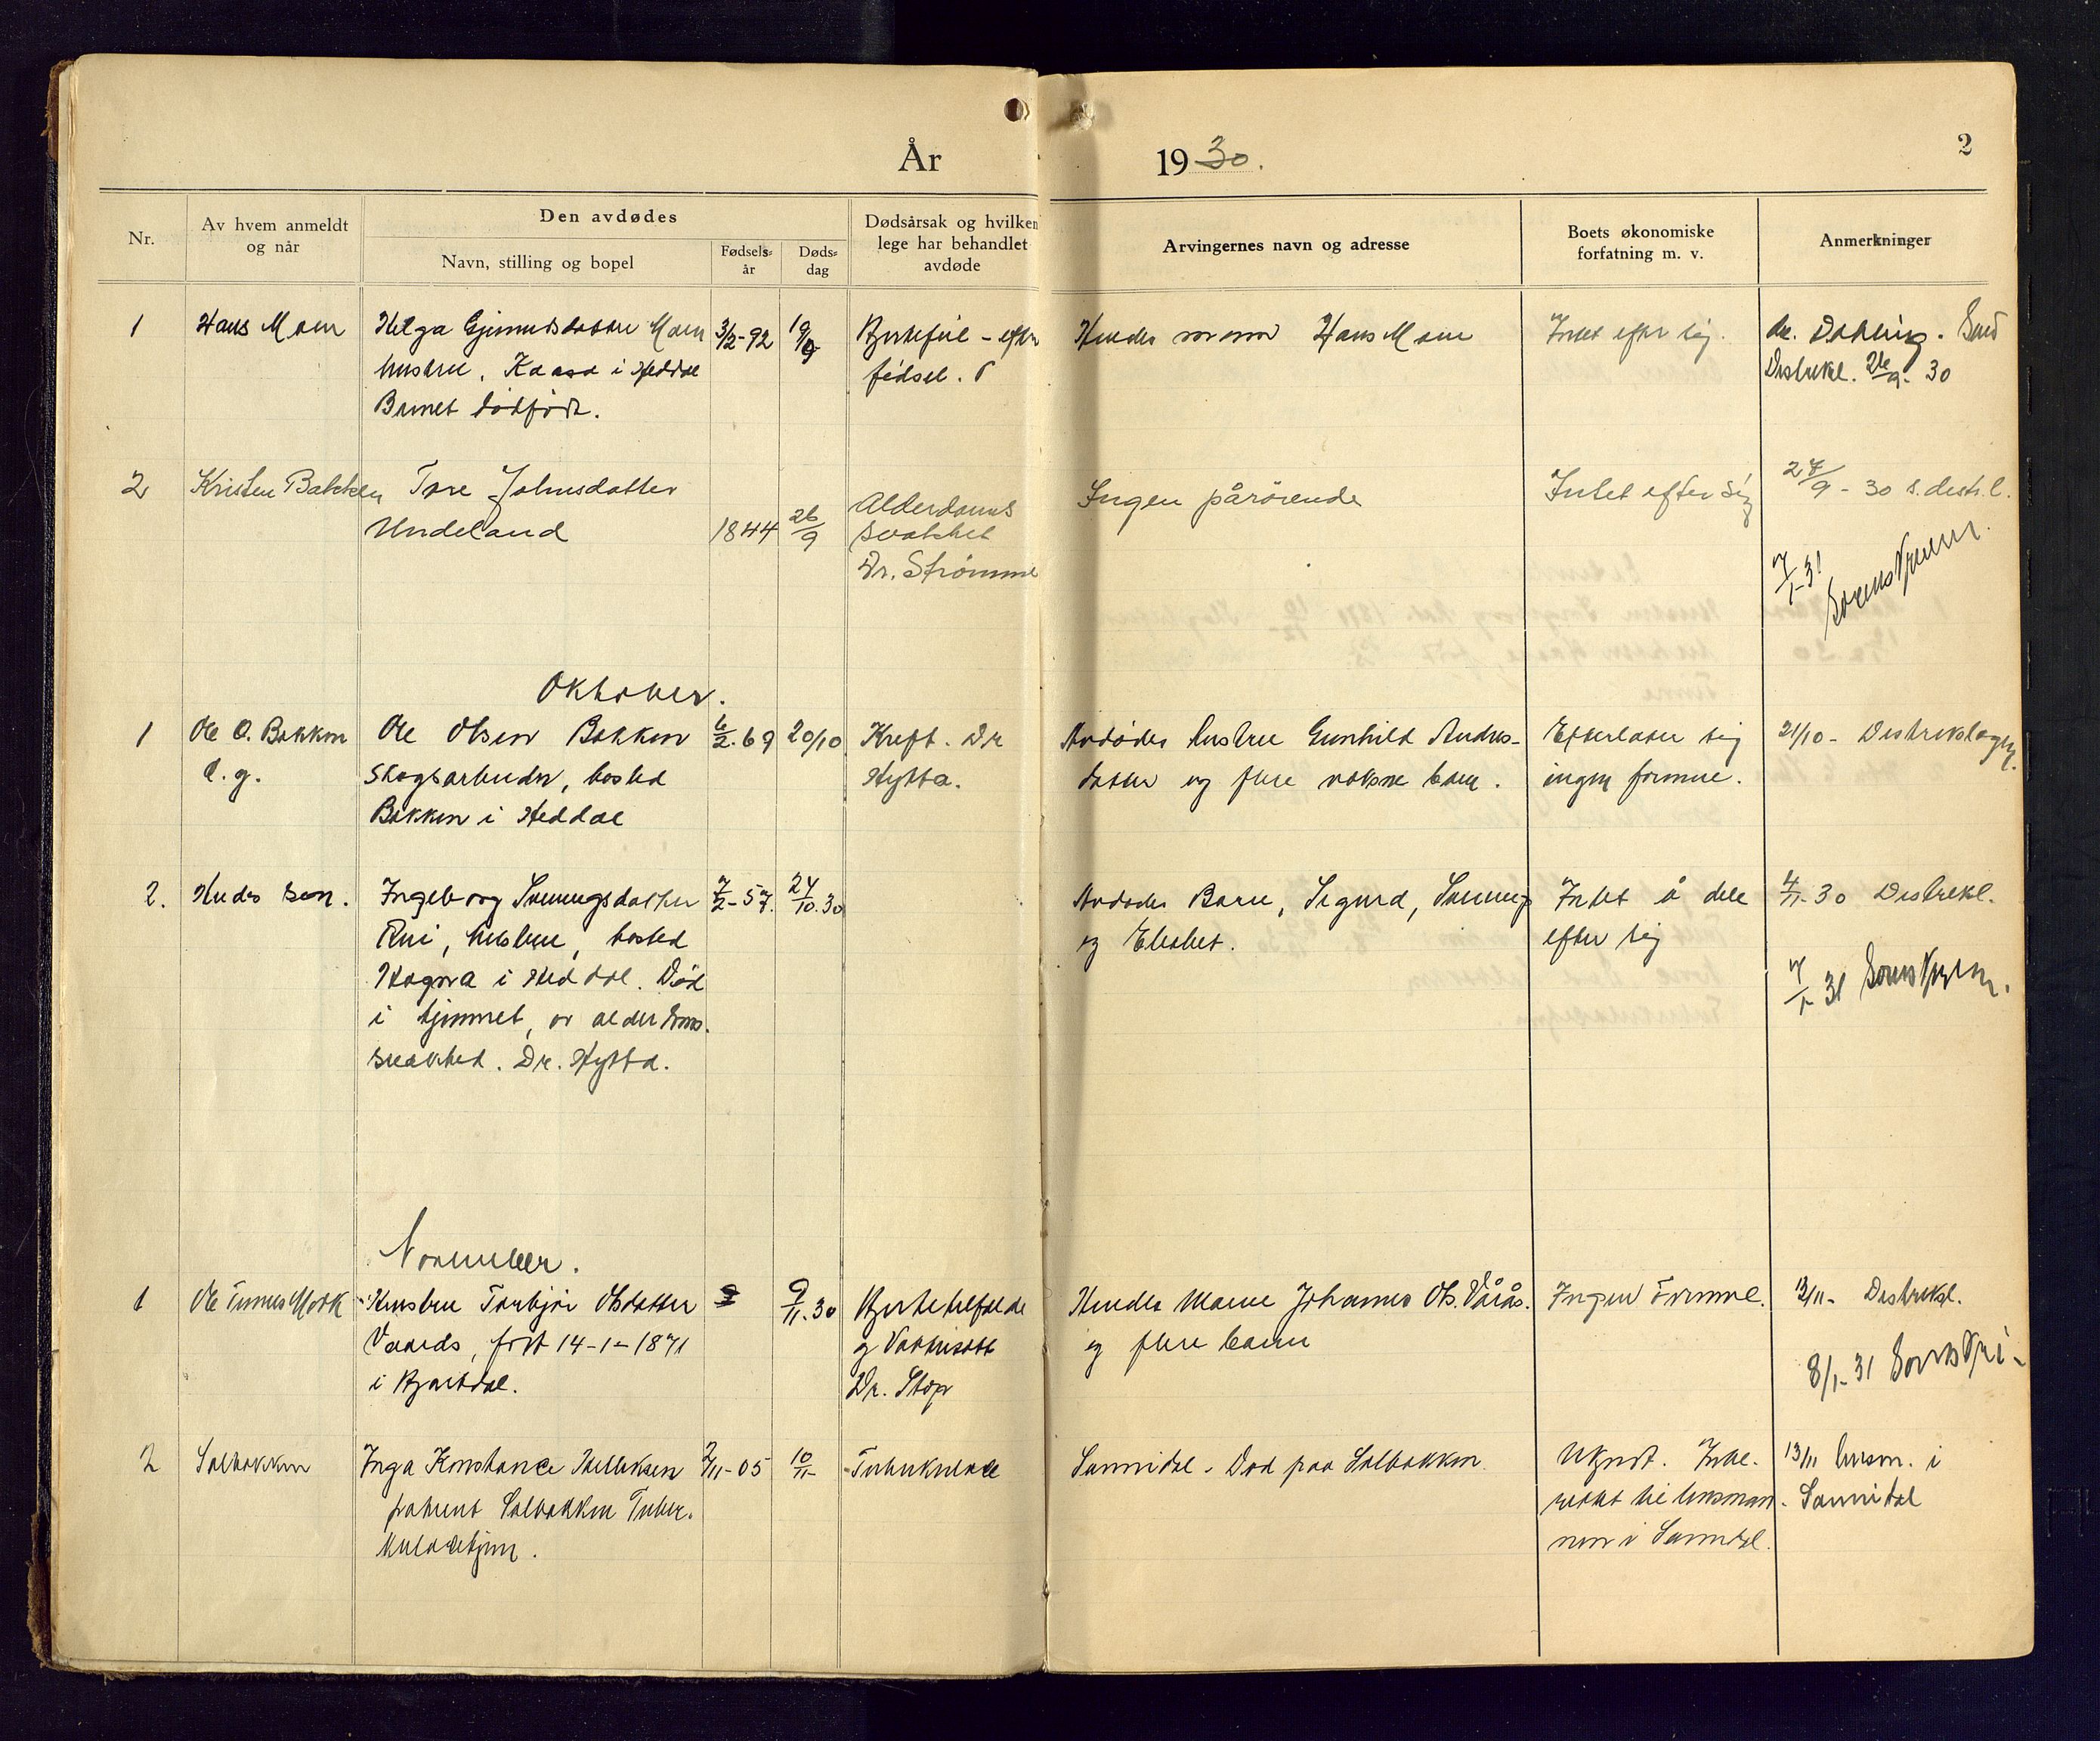 År 1930.
2
Nr.
Av hvem anmeldt
og når
Den avdødes
Navn, stilling og bopel
Fødsels-
år
Døds-
dag
Dødsårsak og hvilken
lege har behandlet
avdøde
Arvingernes navn og adresse
Boets økonomiske
forfatning m. v.
Anmerkninger
1
Hans Moen
Helga Gjermundsdatter Moen
hustru. Kaasa i Heddal
Barnet dødfødt.
3/2-92
19/9
Hjertefeil - efter
fødsel.
Hendes mann Hans Moen
Intet efter sig.
Send
Distriktl. 26/9. 30
2
Kristen Bakken
Tore Johnsdatter
Undeland
1844
26/9
Alderdoms
svakhet
Dr. Strømme
Ingen pårørende
Intet efter sig
27/9 - 30 s. distr. l.
7/1-31
Sorenskriveren.
Oktober.
1
Ole O. Bakken
l. g.
Ole Olsen Bakken
skogsarbeider, bosted
Bakken i Heddal
6/2.69
20/10
Kreft. Dr
Hytta.
Avdødes hustru Gunhild Andres-
datter og flere voksne barn.
Efterlater sig
ingen formue.
21/10- Distriktslegen.
2.
Hendes sønn.
Ingeborg Sveinungsdatter
Rui, hustru, bosted
Hagna i Heddal. Død
i hjemmet, av alderdoms-
svakhet. Dr. Hytta.
7/2-57.
24/10.30
Avdødes Barn, Sigurd, Sveinung
og Elisabet.
Intet å dele
efter sig
4/11-30 Distriktl.
7/1-31 Sorenskriveren.
November.
1
Ole Tinnes Mork
Hustru Torbjør Olsdatter
Vaarås, født 14-1-1871
i Hjartdal.
9/11.30
Hjertetilfælde
og Vattersott
Dr. Stop
Hendes Mann Johannes Ols. Vårås.
og flere barn
Ingen Formue.
13/11- Distriktsl.
8/1-31 Sorenskri-
2
Solbakken
Inga Konstance Helleksen
patient Solbakken Tuber-
kulosehjem.
2/11-05
10/11-
Tuberkulose
Sannidal. Død paa Solbakken
Ukjendt. Inbe-
rettet til lensman-
nen i Sannidal.
13/11 lensm. i
Sannidal